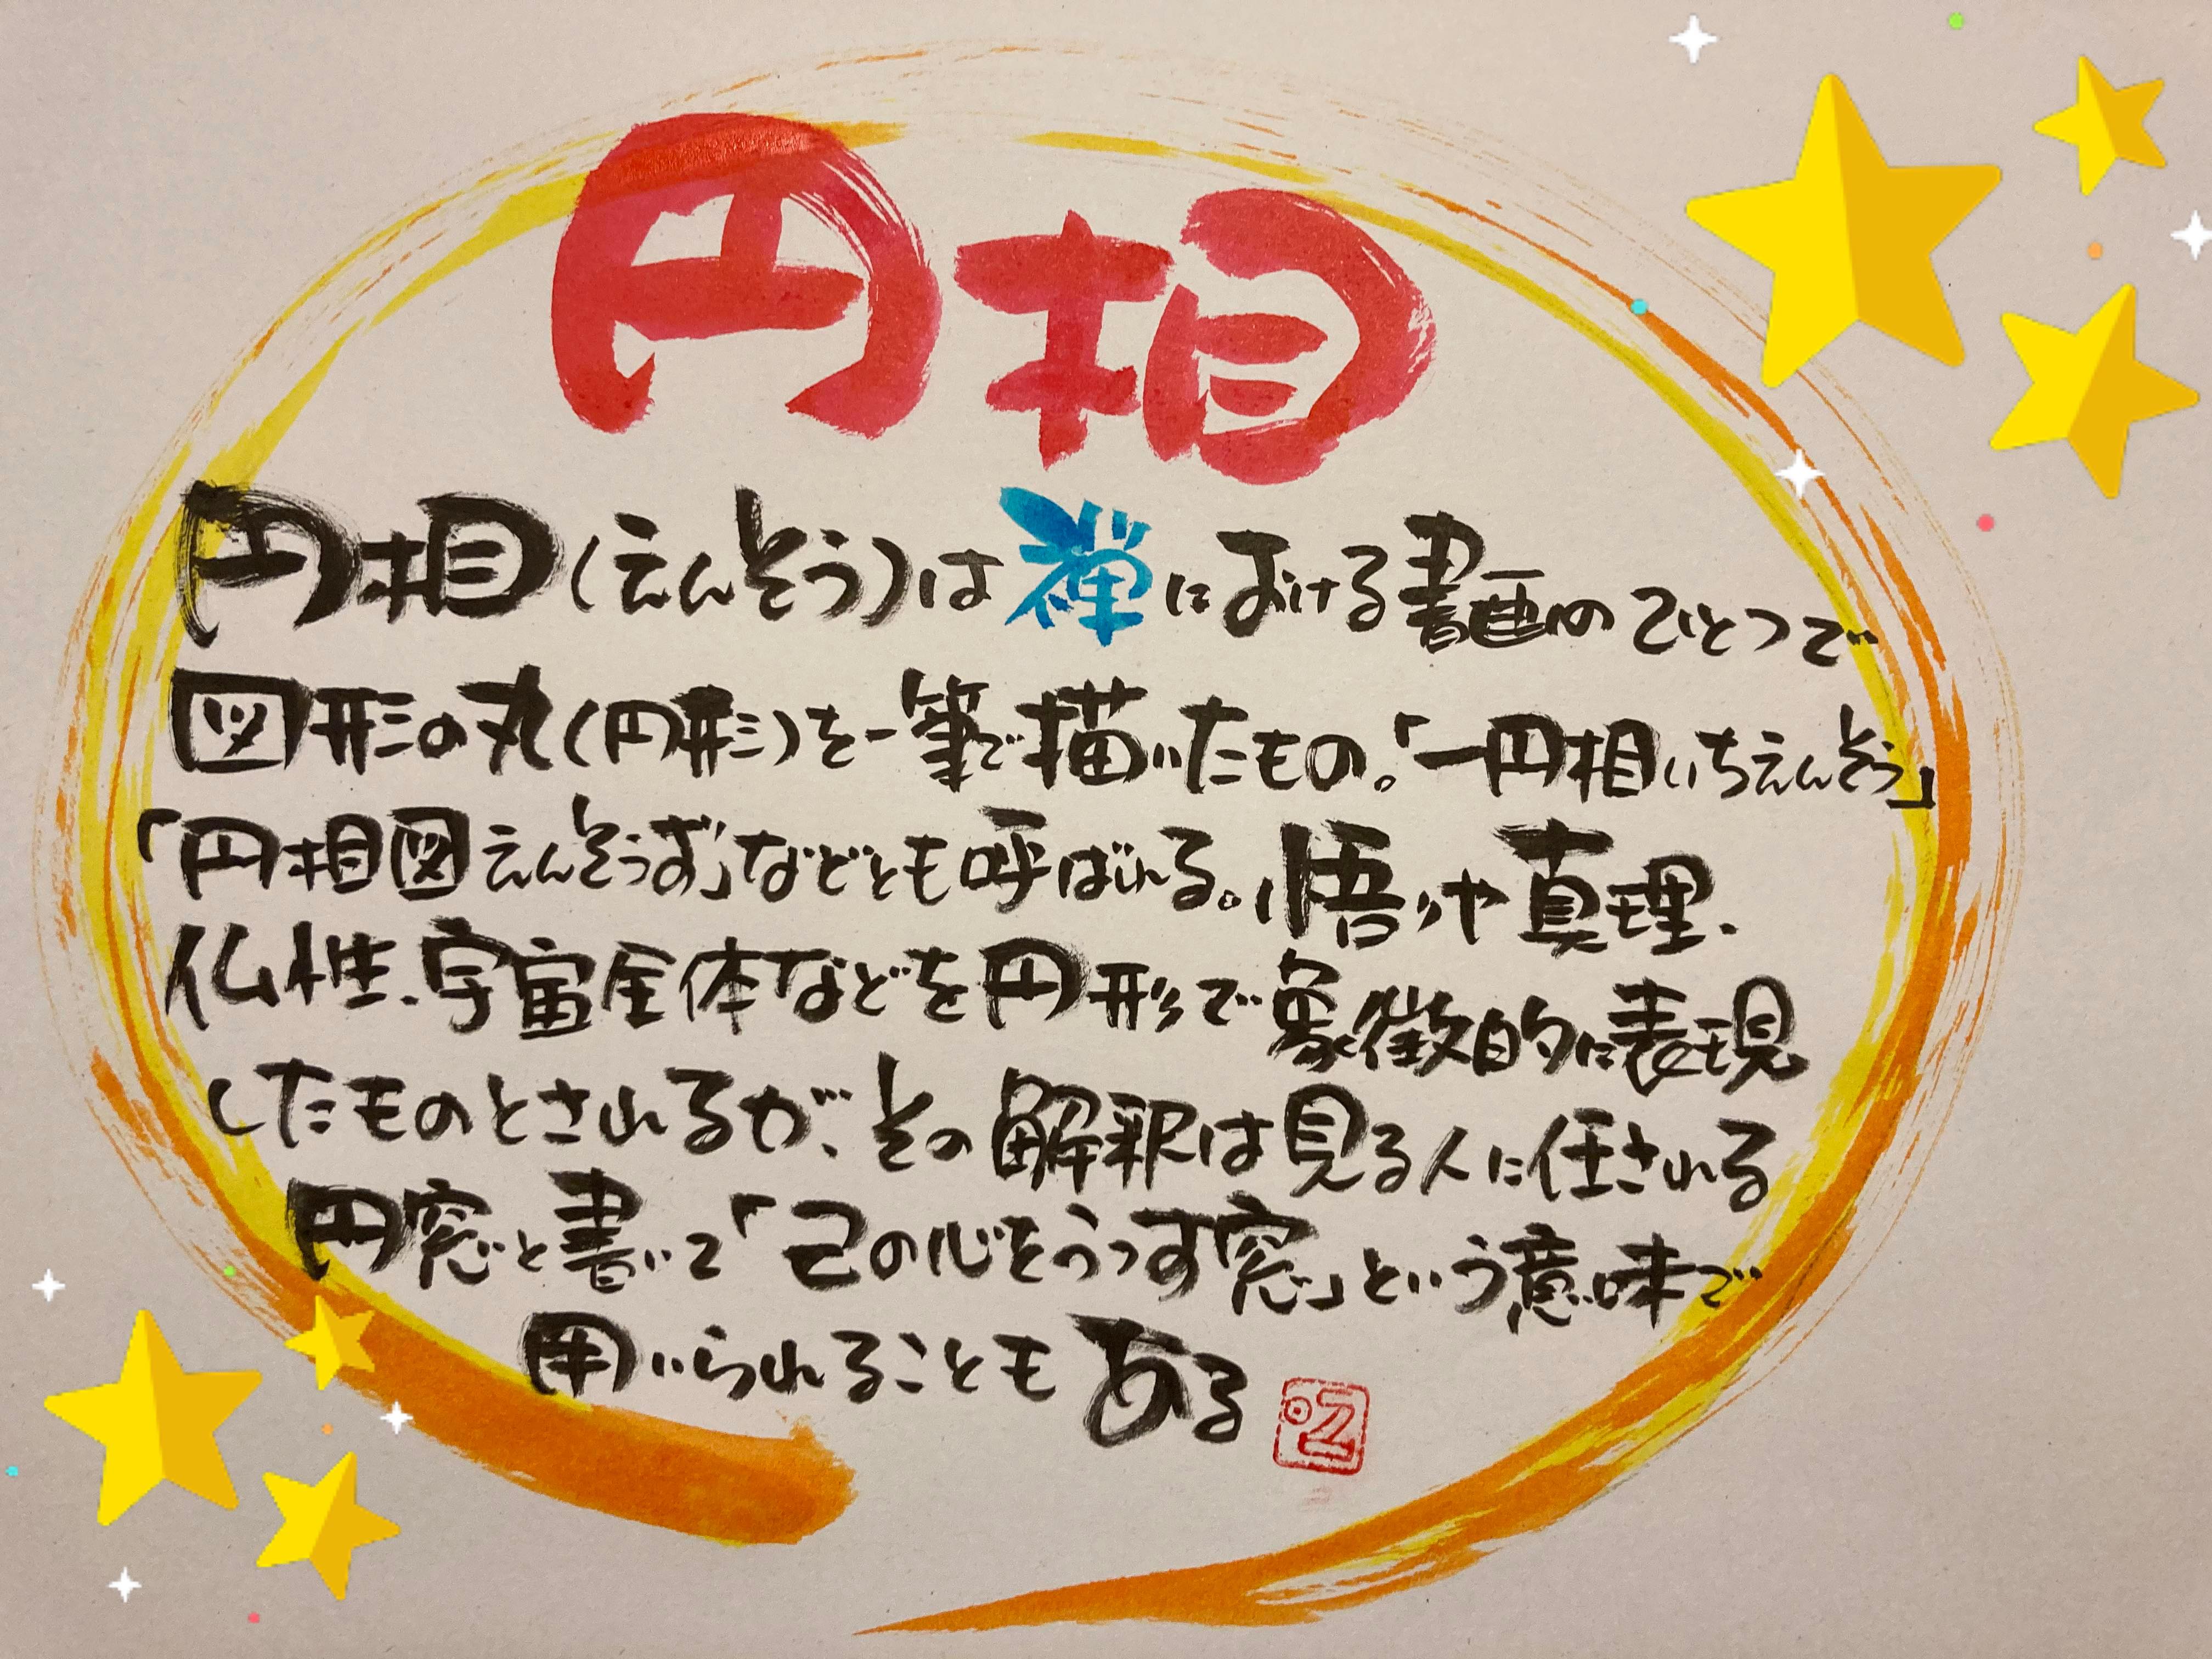 円相
円相(えんそう)は禅における書画のひとつで
図形の丸(円形)を一筆で描いたもの。「一円相いちえんそう」
「円相図えんそうず」などとも呼ばれる。悟りや真理、
仏性、宇宙全体などを円形で象徴的に表現
したものとされるが、その解釈は見る人に任される
円窓と書いて「己の心をうつす窓」という意味で
用いられることもある